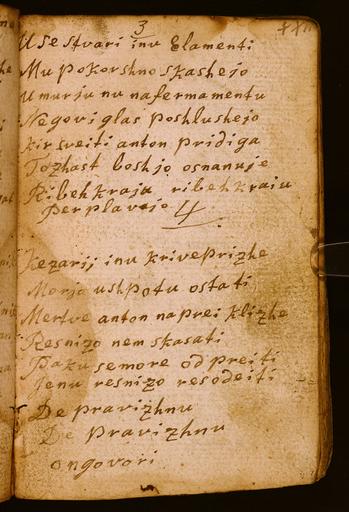 3
Use stvari inu Elamenti
Mu pokorshno skashejo
Umurju nu nafermamentu
Negovi glas poshlushejo
kir sveiti anton pridiga
Tozhast boshjo osnanuje
Ribeh kraja ribeh kraiu
perplavajo 4
kezarij inu krive prizhe
Morjo ushpotu ostati
Mertve anton naprei klizhe
Resnizo nem skasati
Paku semore od preiti
Jenu resnizo resodeiti
De pravizhnu
De Pravizhnu
ongovori